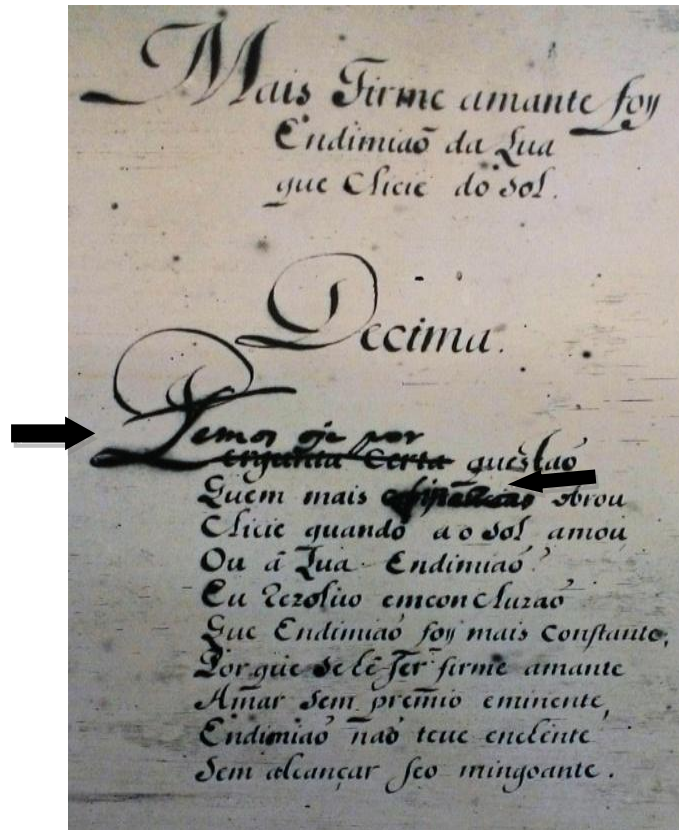 Mais Firme amante foy
Endimiaõ da Lua
que Clicie do Sol.
Decima.
Temos oje por
ergunta Certa questaõ
Quem mais obrou
Clicie quando ao Sol amou
Ou á Lua Endimiaõ?
Eu Rezoluo emconcluzaõ
Que Endimiaõ foy mais Constante,
Porque se hé ser firme amante
Amar sem premio eminente,
Endimiaõ naõ teue enchente
Sem alcançar seo mingoante.